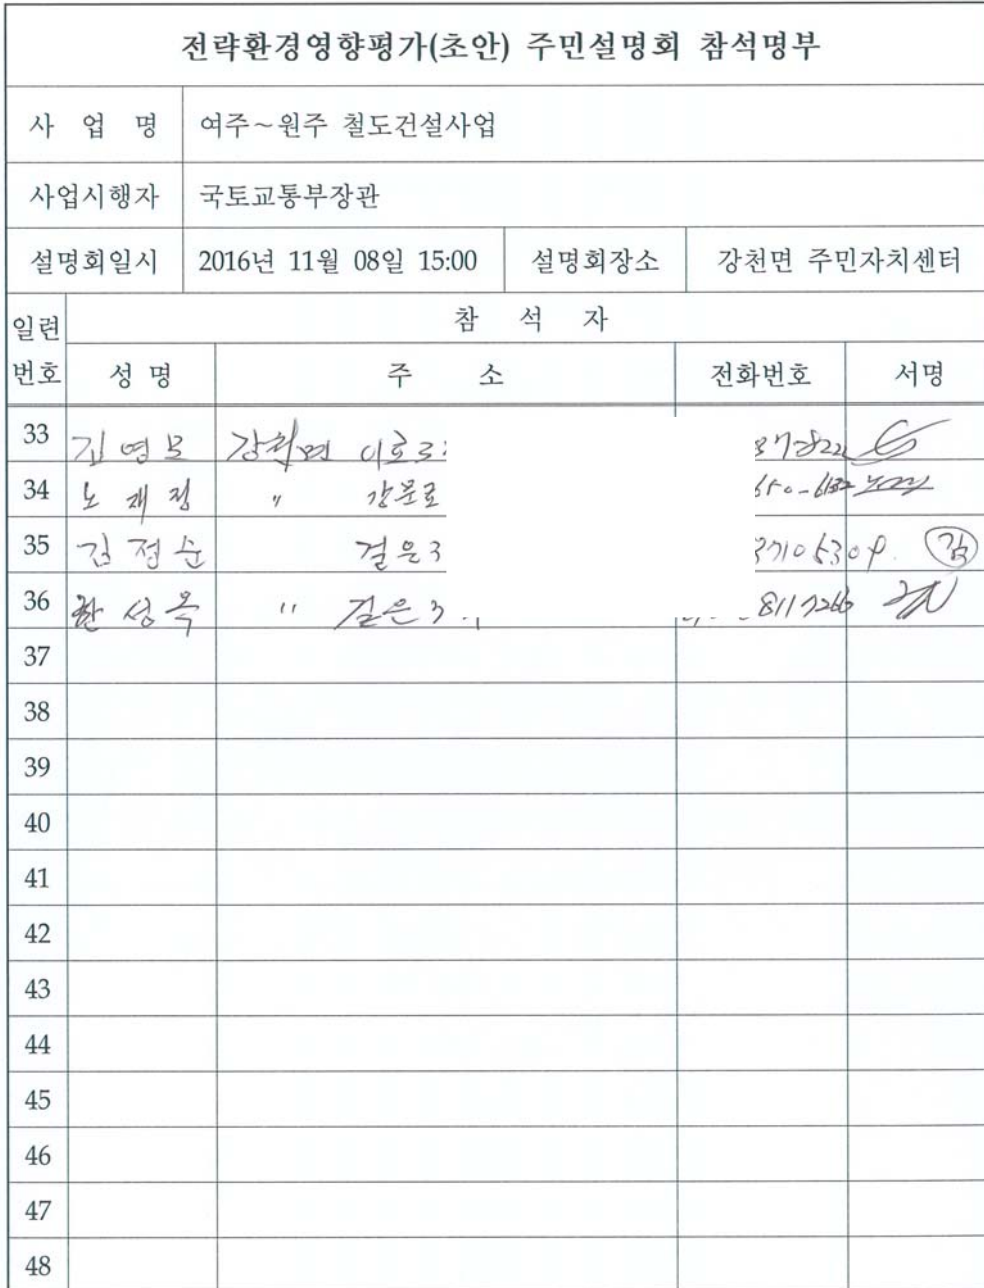 전략환경영향평가(초안) 주민설명회 참석명부
사 업 명 여주~원주 철도건설사업
사업시행자 국토교통부장관
설명회일시 2016년 11월 08일 15:00 설명회장소 강천면 주민자치센터
일련번호 참 석 자
성 명 주 소 전화번호 서명
33 김영모 강천면 이호로
34 노재정 " 강문로 650-6132
35 김정순 걸은 3710 5309 김
36 한성옥 " 걸은 8117266
37
38
39
40
41
42
43
44
45
46
47
48